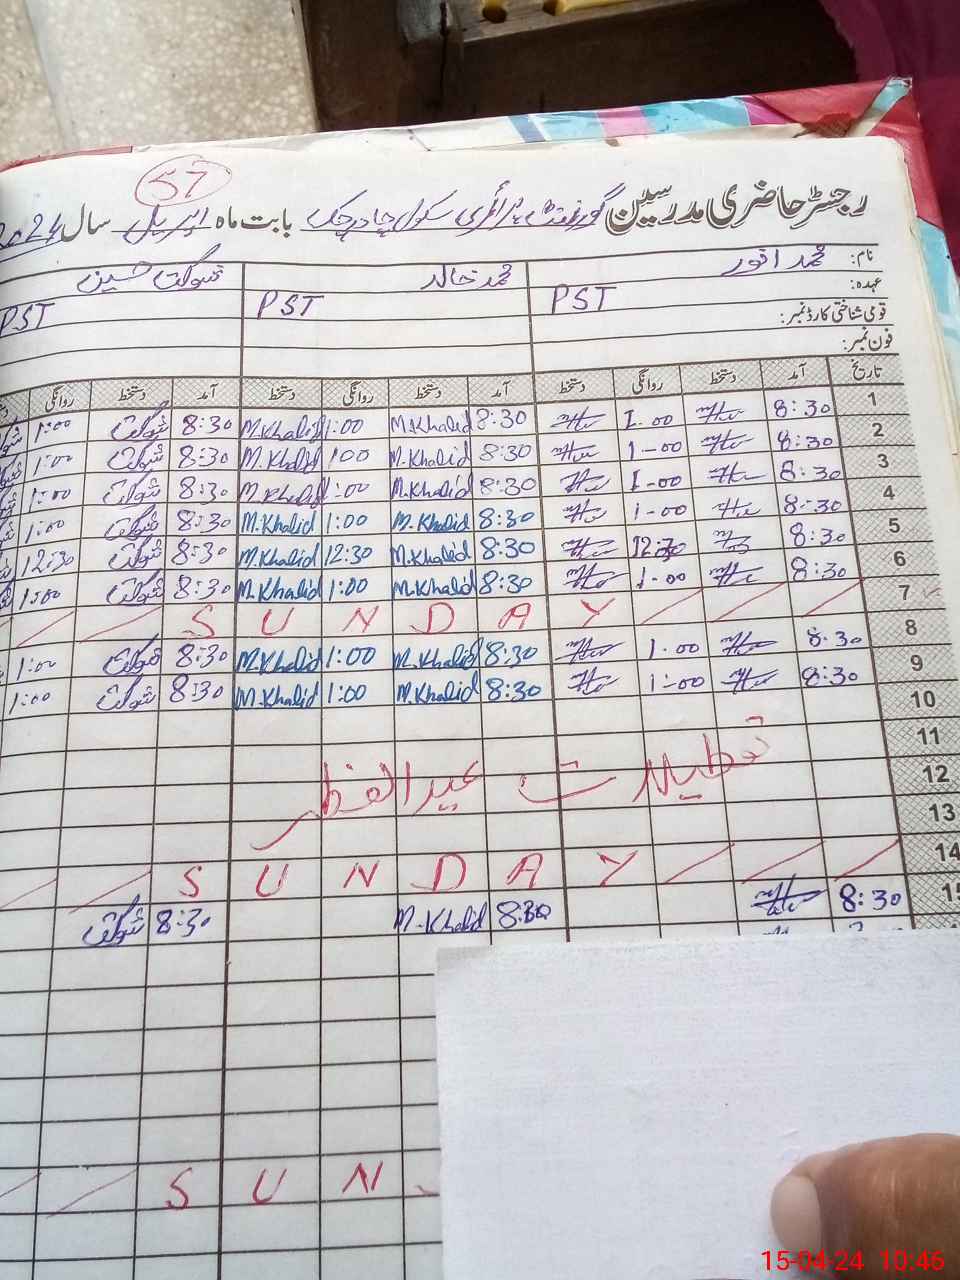 57
رجسٹر حاضری مدرسین گورنمنٹ پرائمری سکول بابت ماہ اپریل سال 2024
نام: محمد انور محمد خالد شوکت حسین
عہدہ: PST PST PST
قومی شناختی کارڈ نمبر:
فون نمبر:
تاریخ آمد دستخط روانگی دستخط آمد دستخط روانگی دستخط آمد دستخط روانگی
1 8:30 1.00 8:30 M.Khalid 1:00 M.Khalid 8:30 شوکت 1:00
2 8:30 1-00 8:30 M.Khalid 1 00 M.Khalid 8:30 شوکت 1:00
3 8:30 1-00 8:30 M.Khalid 1:00 M.Khalid 8:30 شوکت 1:00
4 8:30 1-00 8:30 M.Khalid 1:00 M.Khalid 8:30 شوکت 1:00
5 8:30 12:30 8:30 M.Khalid 12:30 M.Khalid 8:30 شوکت 12:30
6 8:30 1-00 8:30 M.Khalid 1:00 M.Khalid 8:30 شوکت 1:00
7 S U N D A Y
8 8:30 1.00 8:30 M.Khalid 1:00 M.Khalid 8:30 شوکت 1:00
9 8:30 1:00 8:30 M.Khalid 1:00 M.Khalid 8:30 شوکت 1:00
10
11
تعطیلات عید الفطر
12
13
14 S U N D A Y
15 8:30 8:30 M.Khalid 8:30 شوکت
S U N
15-04-24 10:46